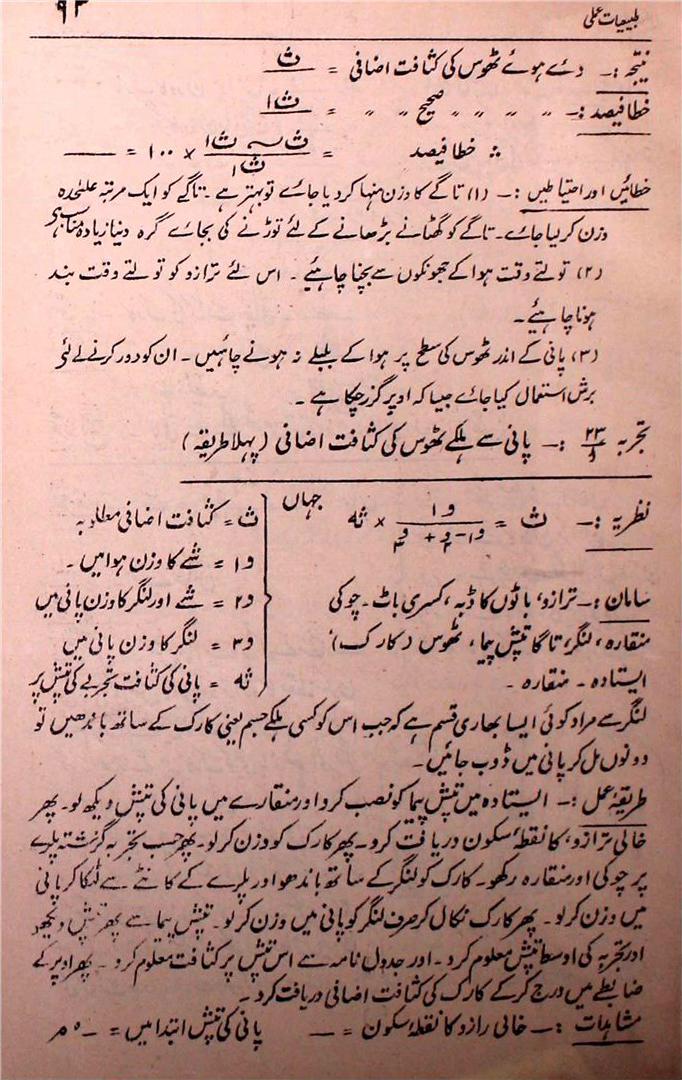 طبیعیات عملی ۹۳
نتیجہ :۔ دئے ہوئے ٹھوس کی کثافت اضافی = ث
خطا فیصد :۔ 〃 〃 〃 〃 صحیح 〃 〃 = ث۱
∴ خطا فیصد = (ث ~ ث۱) / ث۱ × ۱۰۰ = ___
خطائیں اور احتیاطیں :۔ (۱) تاگے کا وزن منہا کر دیا جائے تو بہتر ہے ۔ تاگے کو ایک مرتبہ علٰحدہ
وزن کر لیا جائے۔ تاگے کو گھٹانے بڑھانے کے لئے توڑنے کی بجائے گرہ دینا زیادہ مناسب ہے
(۲) تولتے وقت ہوا کے جھونکوں سے بچنا چاہئیے ۔ اس لئے ترازو کو تولتے وقت بند
ہونا چاہئیے ۔
(۳) پانی کے اندر ٹھوس کی سطح پر ہوا کے بلبلے نہ ہونے چاہئیں ۔ ان کو دور کرنے کے لئے
برش استعمال کیا جائے جیسا کہ اوپر گزر چکا ہے ۔
تجربہ ۲۳/و :۔ پانی سے ہلکے ٹھوس کی کثافت اضافی (پہلا طریقہ)
نظریہ :۔ ث = و۱ / (و۱ - و۲ + و۳) × ثہ جہاں
ث = کثافت اضافی مطلوبہ
و۱ = شے کا وزن ہوا میں ۔
و۲ = شے اور لنگر کا وزن پانی میں
و۳ = لنگر کا وزن پانی میں
ثہ = پانی کی کثافت تجربے کی تپش پر
سامان :۔ ترازو، باٹوں کا ڈبہ، کسری باٹ ۔ چوکی
منقارہ، لنگر، تاگا تپش پیما، ٹھوس (کارک)
ایستادہ ۔ منقارہ ۔
لنگر سے مراد کوئی ایسا بھاری قسم ہے کہ جب اس کو کسی ہلکے جسم یعنی کارک کے ساتھ باندھیں تو
دونوں مل کر پانی میں ڈوب جائیں۔
طریقۂ عمل :۔ ایستادہ میں تپش پیما کو نصب کرو اور منقارے میں پانی کی تپش دیکھ لو۔ پھر
خالی ترازو، کا نقطۂ سکون دریافت کرو ۔ پھر کارک کو وزن کر لو۔ پھر حسب تجربہ گزشتہ پلڑے
پر چوکی اور منقارہ رکھو۔ کارک کو لنگر کے ساتھ باندھو اور پلڑے کے کانٹے سے لٹکا کر پانی
میں وزن کر لو ۔ پھر کارک نکال کر صرف لنگر کو پانی میں وزن کر لو ۔ تپش پیما سے پھر تپش دیکھو
اور تجربہ کی اوسط تپش معلوم کرو ۔ اور جدول نامہ سے اس تپش پر کثافت معلوم کرو ۔ پھر اوپر کے
ضابطے میں درج کر کے کارک کی کثافت اضافی دریافت کرو ۔
مشاہدات :۔ خالی رازو کا نقطۂ سکون = ___ پانی کی تپش ابتدا میں = ___ °م